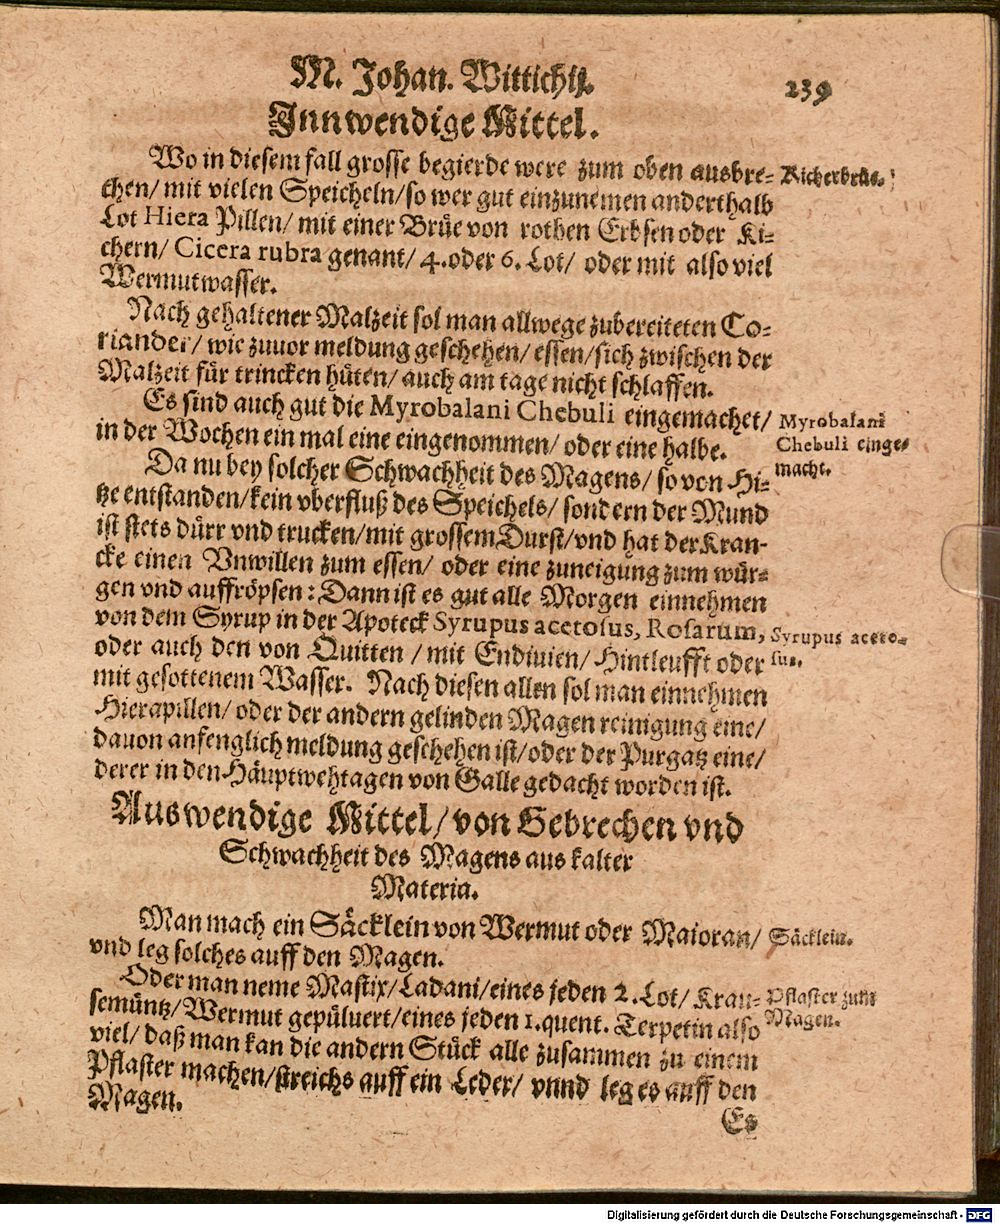 M. Johan. Wittichii.
239
Innwendige Mittel.
Wo in diesem fall grosse begierde were zum oben ausbre-
chen/ mit vielen Speicheln/ so wer gut einzunemen anderthalb
Lot Hiera Pillen/ mit einer Brüe von rothen Erbsen oder Ki-
chern/ Cicera rubra genant/ 4. oder 6. Lot/ oder mit also viel
Wermutwasser.
Kicherbrüe.
Nach gehaltener Malzeit sol man allwege zubereiteten Co-
riander/ wie zuuor meldung geschehen/ essen/ sich zwischen der
Malzeit für trincken hüten/ auch am tage nicht schlaffen.
Es sind auch gut die Myrobalani Chebuli eingemachet/
in der Wochen ein mal eine eingenommen/ oder eine halbe.
Myrobalani
Chebuli einge-
macht.
Da nu bey solcher Schwachheit des Magens/ so von Hi-
tze entstanden/ kein vberfluß des Speichels/ sondern der Mund
ist stets dürr vnd trucken/ mit grossem Durst/ vnd hat der Kran-
cke einen Vnwillen zum essen/ oder eine zuneigung zum wür-
gen vnd auffröpsen: Dann ist es gut alle Morgen einnehmen
von dem Syrup in der Apoteck Syrupus acetosus, Rosarum,
oder auch den von Quitten / mit Endiuien/ Hintleufft oder
mit gesottenem Wasser. Nach diesen allen sol man einnehmen
Hierapillen/ oder der andern gelinden Magen reinigung eine/
dauon anfenglich meldung geschehen ist/ oder der Purgatz eine/
derer in den Häuptwehtagen von Galle gedacht worden ist.
Syrupus aceto-
sus.
Auswendige Mittel/ von Gebrechen vnd
Schwachheit des Magens aus kalter
Materia.
Man mach ein Säcklein von Wermut oder Maioran/
vnd leg solches auff den Magen.
Säcklein.
Oder man neme Mastix/ Ladani/ eines jeden 2. Lot/ Krau-
semüntz/ Wermut gepüluert/ eines jeden 1. quent. Terpetin also
viel/ daß man kan die andern Stück alle zusammen zu einem
Pflaster machen/ streichs auff ein Leder/ vnnd leg es auff den
Magen.
Pflaster zum
Magen.
Es
Digitalisierung gefördert durch die Deutsche Forschungsgemeinschaft - DFG